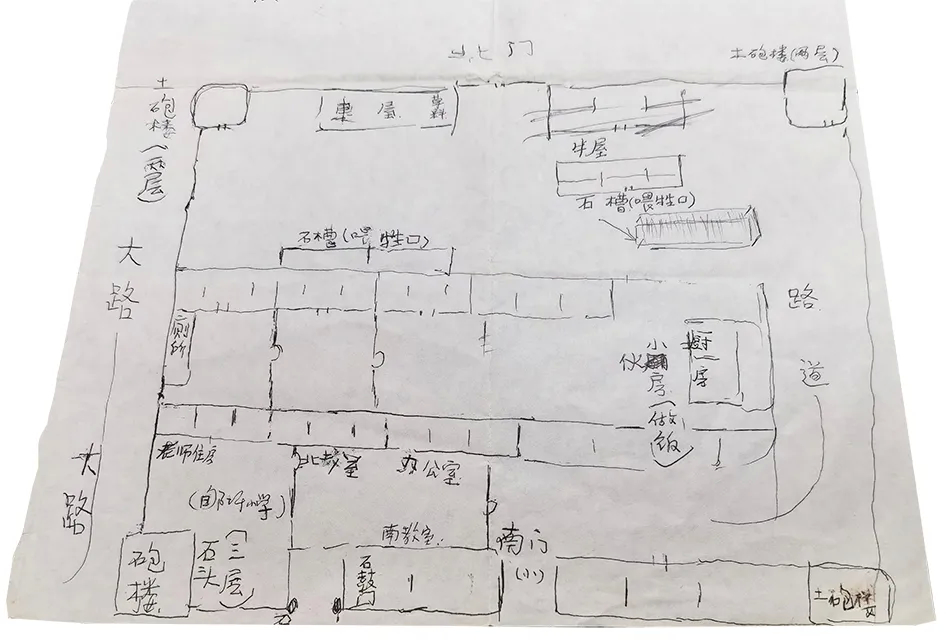 北门
土砲楼(两层)
土砲楼(两层)
車屋
牛屋
石槽(喂牲口)
石槽(喂牲口)
大路
路道
厕所
小伙房(做饭)
厨房
大路
老师住房
北教室
办公室
南教室
南门
(小)
砲楼
石头(三层)
石鼓门
土砲楼